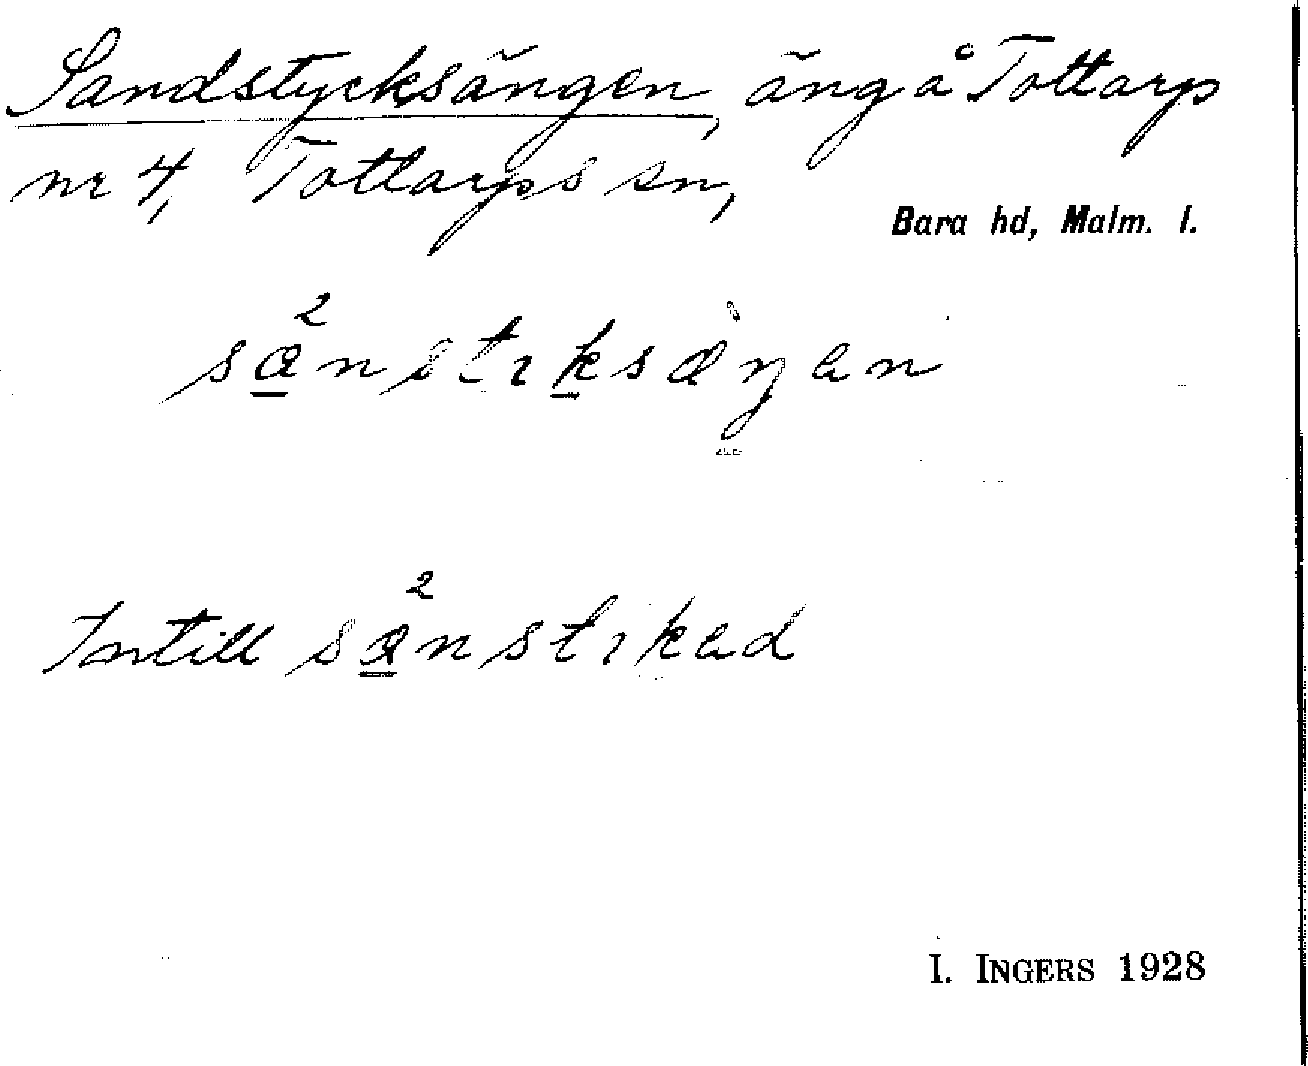 Sandstycksängen, äng å Tottarp
nr 4, Tottarps sn,
Bara hd, Malm. l.
sa²nstıksæŋan
Intill sa²nstıkad
I. INGERS 1928